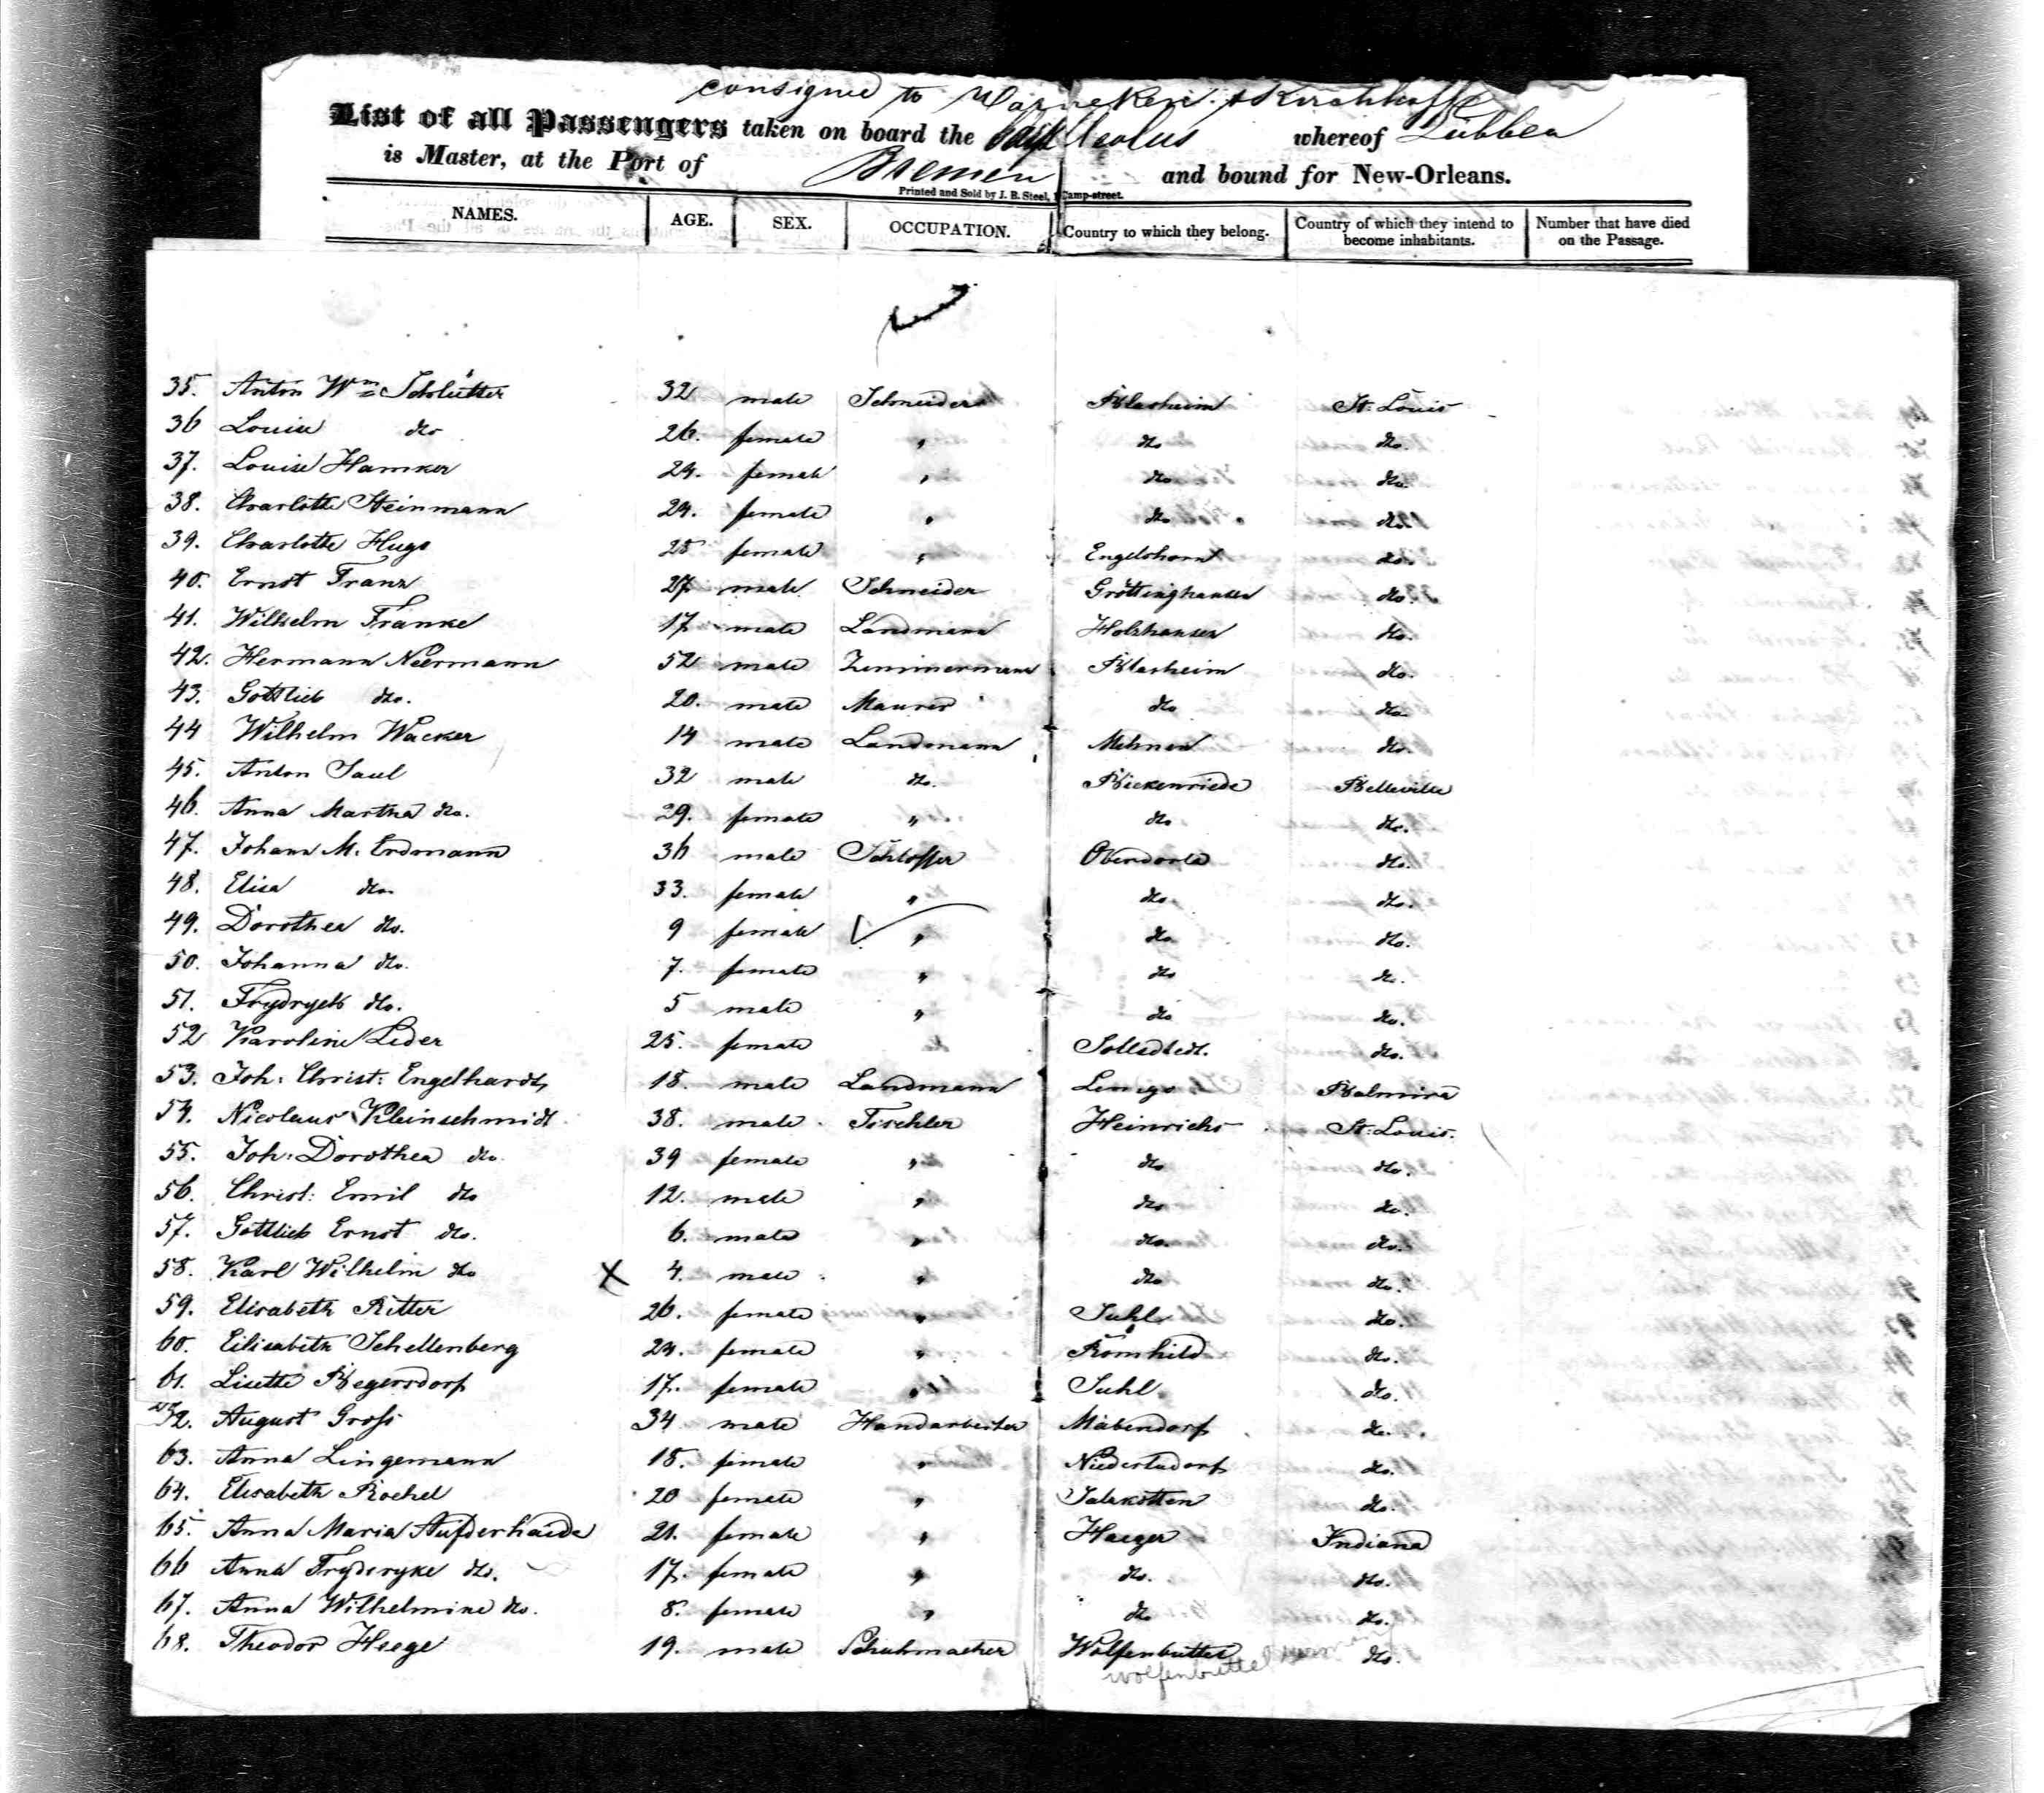 consigned to Warneken & Kirchhoff
List of all Passengers taken on board the Bark Aeolus whereof Lübben
is Master, at the Port of Bremen and bound for New-Orleans.
Printed and Sold by J. B. Steel, Camp-street.
NAMES. AGE. SEX. OCCUPATION. Country to which they belong. Country of which they intend to become inhabitants. Number that have died on the Passage.
35. Anton Wm Schlütter 32 male Schneider Blasheim St. Louis
36 Louise do 26. female " do do.
37. Louise Hamker 24. female " do do.
38. Charlotte Steinmann 24. female " do do.
39. Charlotte Hugo 25 female " Engelshorst do.
40. Ernst Franz 27 male Schneider Gröttinghausen do.
41. Wilhelm Franke 17 male Landmann Holzhausen do.
42. Hermann Neermann 52 male Zimmermann Blasheim do.
43. Gottlieb do. 20. male Maurer do do.
44 Wilhelm Wacker 14 male Landmann Mehnen do.
45. Anton Saul 32 male do. Bickenriede Belleville
46. Anna Martha do. 29. female " do do.
47. Johann M. Erdmann 36 male Schlosser Oberdorla do.
48. Elisa do. 33. female " do do.
49. Dorothea do. 9 female " do do.
50. Johanna do. 7. female " do do.
51. Frydryck do. 5 male " do do.
52 Karoline Leder 25. female Sollstedt. do.
53. Joh: Christ: Engelhardt, 18. male Landmann Lengo Balmira
54. Nicolaus Kleinschmidt 38. male Tischler Heinrichs St: Louis.
55. Joh: Dorothea do 39 female " do do.
56. Christ: Emil do 12. male " do do.
57. Gottlieb Ernst do. 6. male " do. do.
58. Karl Wilhelm do X 4. male " do do.
59. Elisabeth Ritter 26. female " Suhl do.
60. Eilisabeth Schellenberg 24. female " Römhild do.
61. Lisette Begersdorf 17. female " Suhl do.
62. August Gross 34 male Handarbeiter Mäbendorf do.
63. Anna Lingemann 18. female " do.
64. Elisabeth Rochel 20 female " Salzkotten do.
65. Anna Maria Aufderhaide 21. female " Haeger Indiana
66 Anna Fryderyke do. 17. female " do. do.
67. Anna Wilhelmine do. 8. female " do do.
68. Theodor Heege 19. male Schuhmacher Wolfenbüttel do.
Wolfenbüttel